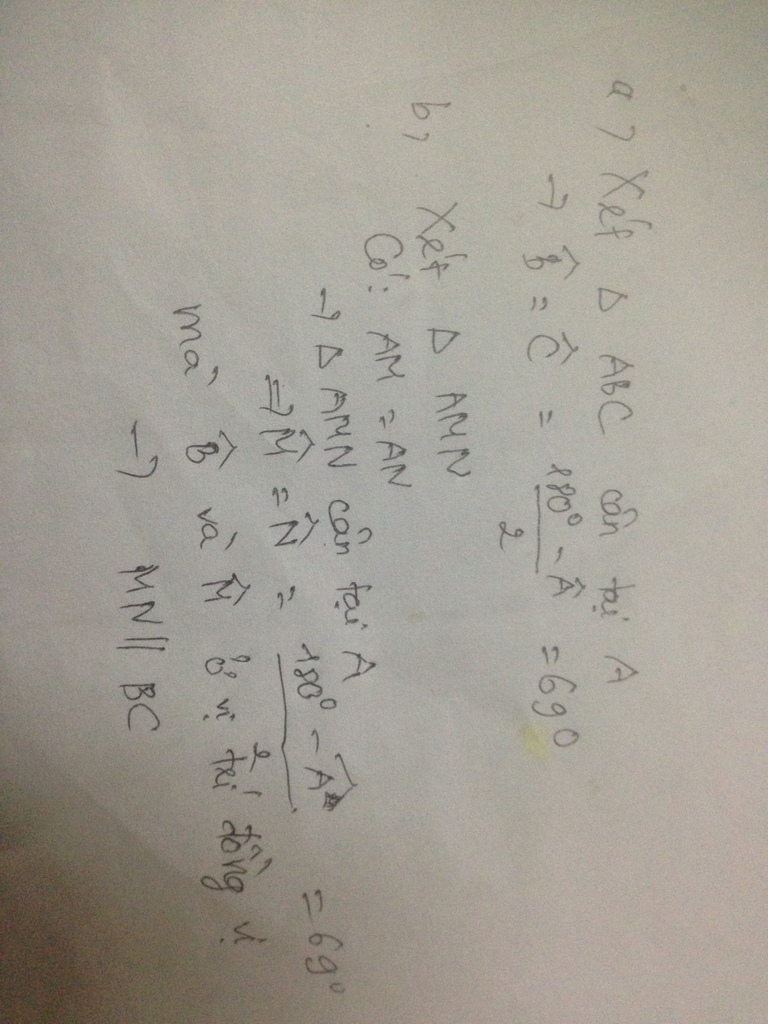 a) Xét Δ ABC cân tại A
→ B̂ = Ĉ = (180° - Â)/2 = 69°
b, Xét Δ AMN
Có: AM = AN
→ Δ AMN cân tại A
⇒ M̂ = N̂ = (180° - Â)/2 = 69°
mà B̂ và M̂ ở vị trí đồng vị
→ MN // BC